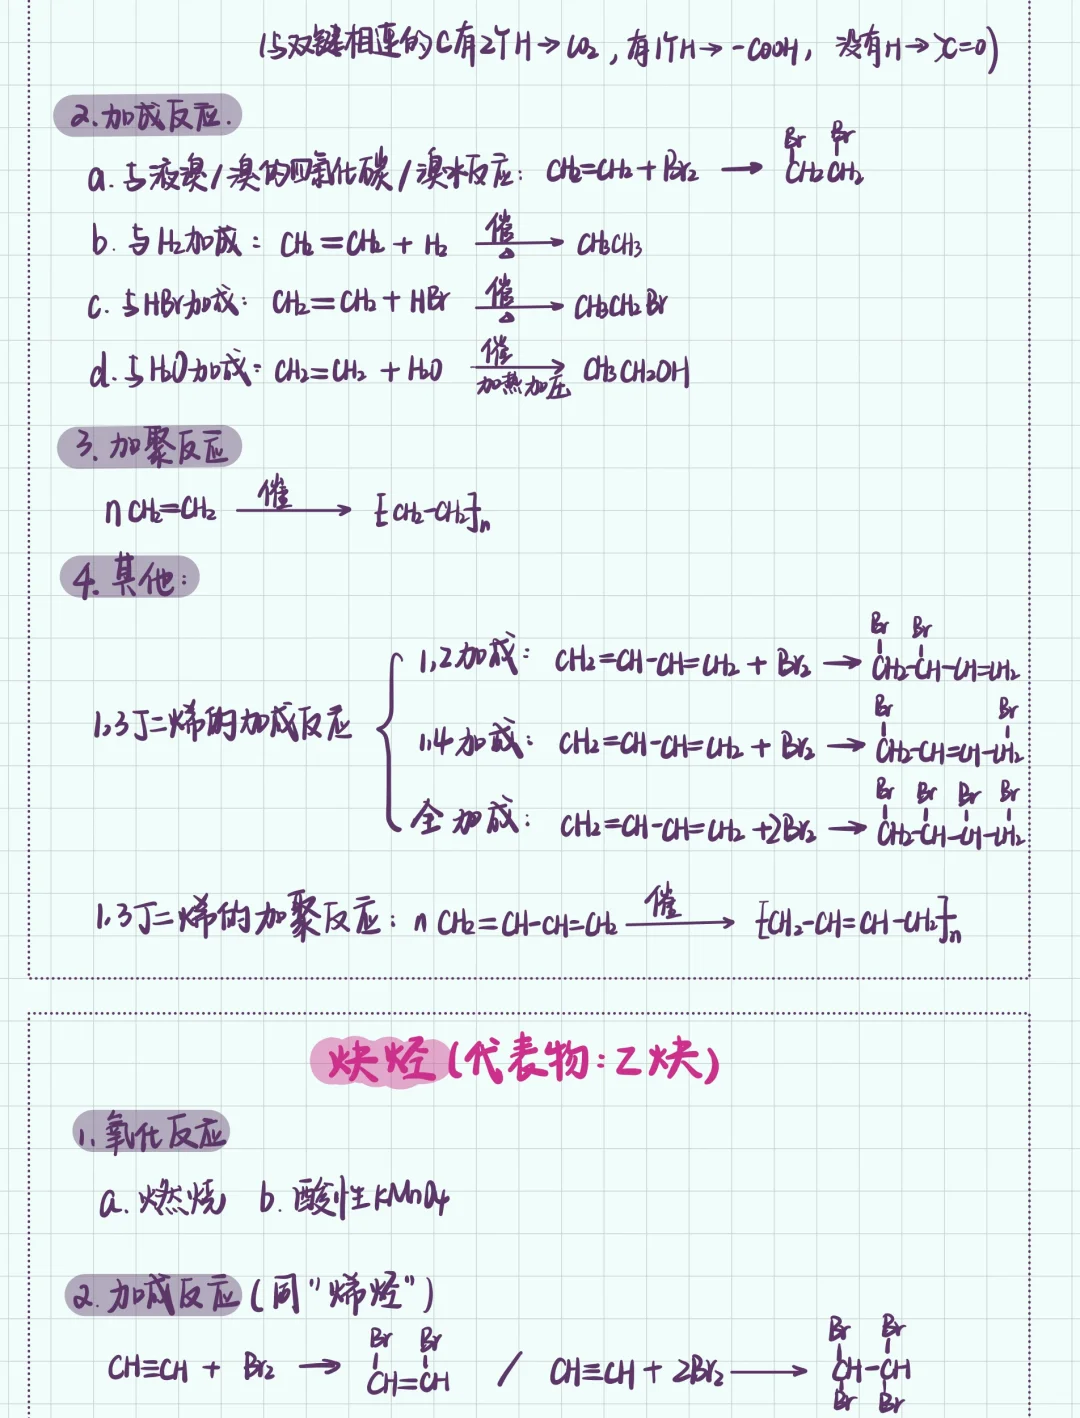 (与双键相连的C有2个H→CO2,有1个H→-COOH, 没有H→>C=O)
2.加成反应.
a.与液溴/溴的四氯化碳/溴水反应: CH2=CH2+Br2 → CH2CH2
Br Br
b.与H2加成: CH2=CH2+H2 催 △ → CH3CH3
c.与HBr加成: CH2=CH2+HBr 催 △ → CH3CH2Br
d.与H2O加成: CH2=CH2+H2O 催 加热加压 → CH3CH2OH
3.加聚反应
nCH2=CH2 催 → [CH2-CH2]n
4.其他:
Br Br
1,2加成: CH2=CH-CH=CH2+Br2 → CH2-CH-CH=CH2
1,3丁二烯的加成反应
Br Br
1,4加成: CH2=CH-CH=CH2+Br2 → CH2-CH=CH-CH2
Br Br Br Br
全加成: CH2=CH-CH=CH2+2Br2 → CH2-CH-CH-CH2
1,3丁二烯的加聚反应: nCH2=CH-CH=CH2 催 → [CH2-CH=CH-CH2]n
炔烃(代表物:乙炔)
1.氧化反应
a.燃烧 b.酸性KMnO4
2.加成反应(同"烯烃")
Br Br Br Br
CH≡CH+Br2 → CH=CH / CH≡CH+2Br2 → CH-CH
Br Br